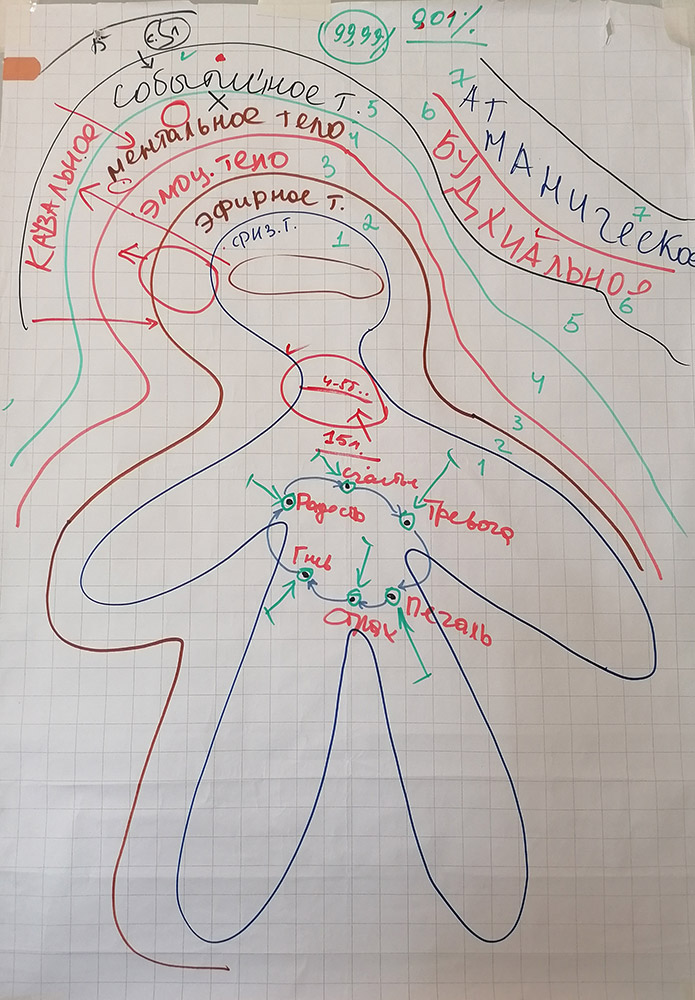 99,99%
0,01%
7
АТМАНИЧЕСКОЕ
7
6
БУДХИАЛЬНОЕ
6
Событийное т. 5
КАУЗАЛЬНОЕ
ментальное тело 4
эмоц. тело 3
эфирное т.
2
физ. т.
1
5
4
3
2
1
4-5л..
15л.
счастье
Радость
Тревога
Гнев
Печаль
Страх